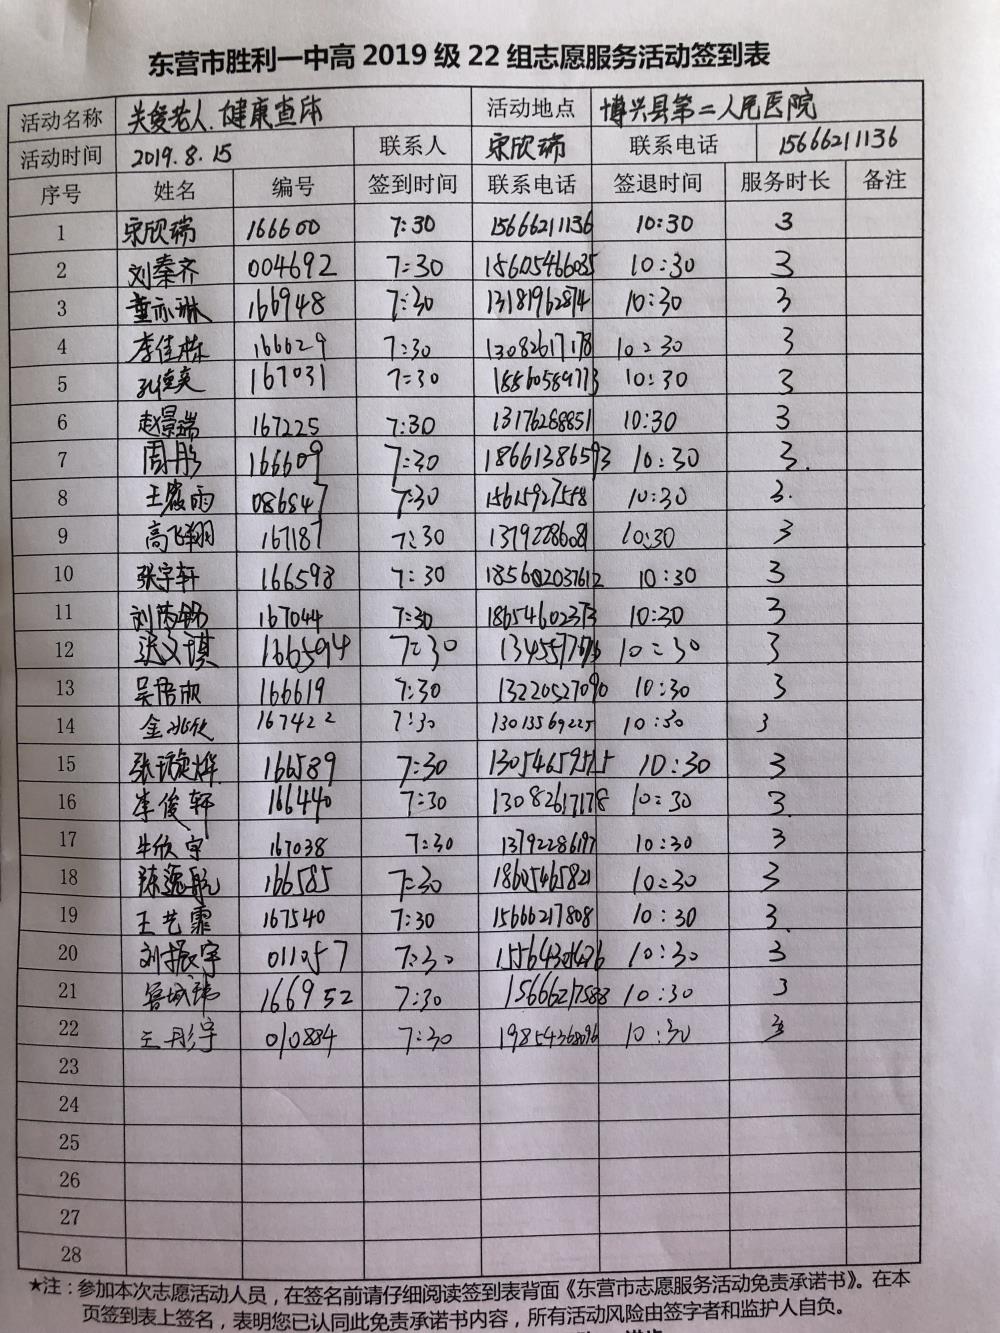 东营市胜利一中高2019级22组志愿服务活动签到表
活动名称 关爱老人.健康查体 活动地点 博兴县第二人民医院
活动时间 2019.8.15 联系人 宋欣瑞 联系电话 15666211136
序号 姓名 编号 签到时间 联系电话 签退时间 服务时长 备注
1 宋欣瑞 166600 7:30 15666211136 10:30 3
2 刘秦齐 004692 7:30 18605466035 10:30 3
3 董亦琳 166948 7:30 13181962874 10:30 3
4 李佳栋 166629 7:30 13082617178 10:30 3
5 167031 7:30 18560589773 10:30 3
6 赵景瑞 167225 7:30 13176288851 10:30 3
7 周彤 166609 7:30 18661386593 10:30 3.
8 王宸雨 086847 7:30 15615927558 10:30 3.
9 高飞翔 167187 7:30 13792286081 10:30 3
10 张宇轩 166598 7:30 185602037612 10:30 3
11 167044 7:30 18654602373 10:30 3
12 张文琪 166594 7:30 10:30 3
13 吴唐欣 166619 7:30 13220527090 10:30 3
14 金兆欣 167422 7:30 13013569225 10:30 3
15 张璇烨 166589 7:30 13054659515 10:30 3
16 李俊轩 166440 7:30 13082617178 10:30 3
17 牛欣宇 167038 7:30 13792286197 10:30 3
18 陈逸航 166585 7:30 18605465821 10:30 3
19 王艺霏 167540 7:30 15666217808 10:30 3.
20 刘振宇 011057 7:30 10:30 3
21 166952 7:30 15666217588 10:30 3
22 王彤宇 010884 7:30 19854368096 10:30 3
23
24
25
26
27
28
★注：参加本次志愿活动人员，在签名前请仔细阅读签到表背面《东营市志愿服务活动免责承诺书》。在本
页签到表上签名，表明您已认同此免责承诺书内容，所有活动风险由签字者和监护人自负。